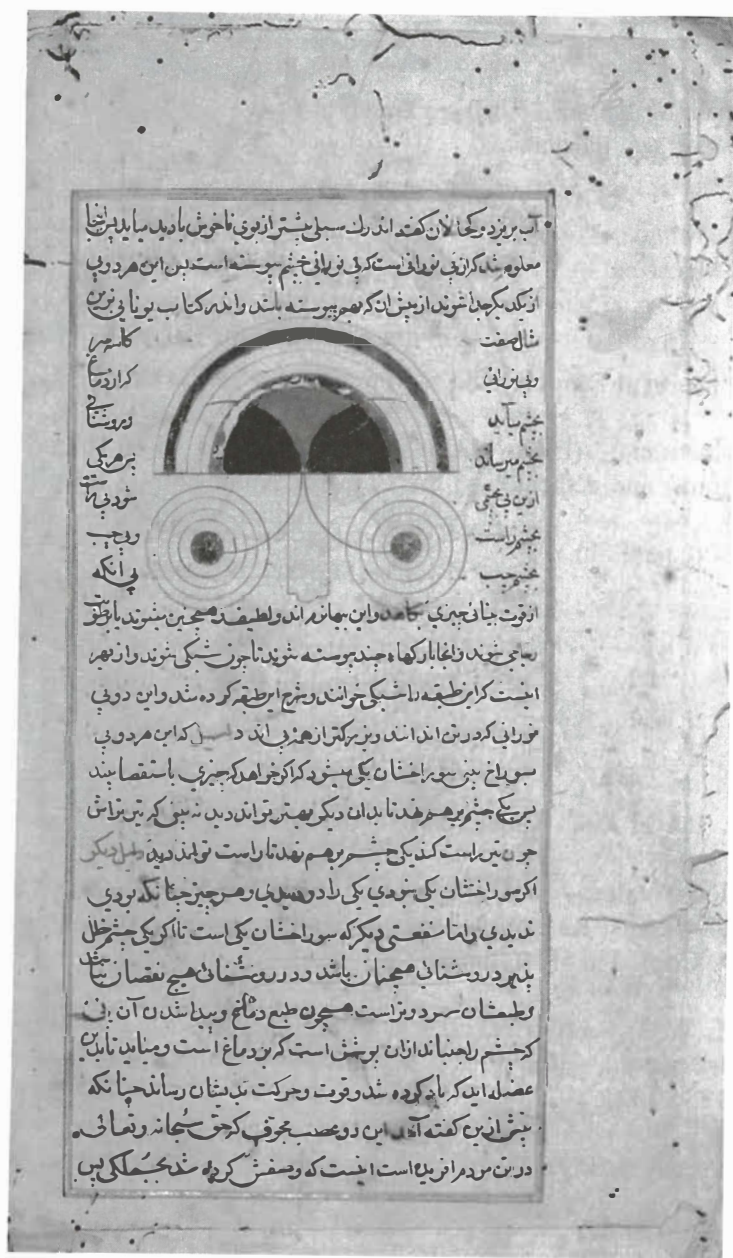 آب بریزد و کحالان گفته اند رک سبلی بیشتر از بوی ناخوش بادید میاید پس اینجا
معلوم شد کراز نی نورانی است که نی نورانی خشم پیوسته است پس این هر دو پی
از یکدیگر جدا شوند از پیش ان که بهم پیوسته باشند و اندر کتاب یونانی نرین
مثال صفت کاسه سر
وپی نورانی کراز دماغ
بچشم میآید وروشنائی
بچشم میرساند پس هر یکی
ازین پی بچشمی شود پی راست
بچشم راست و پی چپ
بچشم چپ پی آنکه
از قوت بینائی چیزی بکاهد و این پیها نورانند و لطیف و همچنین میشوند تا برطوبت
زجاجی شوند و انجا بارکها چند پیوسته شوند تا چون شبکی شوند و از بهر
اینست کراین طبقه را شبکی خوانند و شرح این طبقه کرده شد و این دو پی
نورانی که در تن اند و بزرکتر از همه پی اند که این هر دو پی
سوراخ بینی سوراخشان یکی میشود که اکر خواهد که چیزی باستقصا بیند
پس یکی چشم بر هم نهد تا بدان دیکر بهتر بتواند دید نه بینی که تیرتراش
چون تیر راست کند یکی چشم بر هم نهد تا راست تواند دید دلیل دیکر
اکر سوراخشان یکی نبودی یکی را دو دیدی و هر چیز چنانکه بودی
ندیدی و اما منفعتی دیکر که سوراخشان یکی است تا اکر یکی چشم خلل
پذیرد در روشنائی همچنان باشد و در روشنائی هیچ نقصان نباشد
و طبعشان سرد و تر است همچون طبع دماغ و پیدا شدن آن پی
که چشم را جنباند ازان پوشش است که بر دماغ است و میاید تا بدین
عضله اید که یاد کرده شد و قوت و حرکت بدیشان رساند چنانکه
پیش ازین کفته آمد این دو عصب مجوف که حق سبحانه و تعالی
در تن مردم افریده است اینست که وصفش کرده شد بجملکی پس